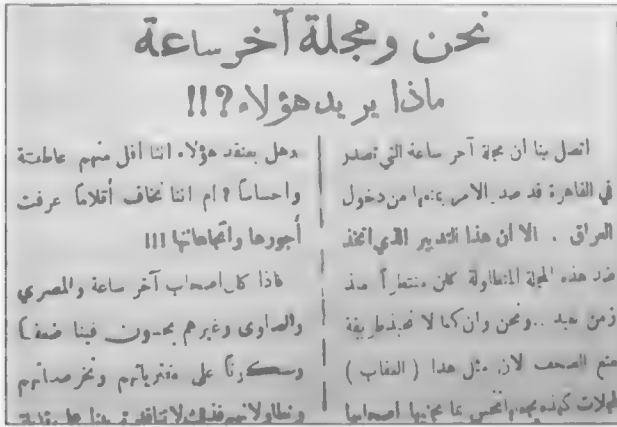 نحن ومجلة آخر ساعة
ماذا يريد هؤلاء؟!!
اتصل بنا ان مجلة آخر ساعة التي تصدر
في القاهرة قد صدر الامر بمنعها من دخول
العراق . الا ان هذا التدبير الذي اتخذ
ضد هذه المجلة المتطاولة كان منتظراً منذ
زمن بعيد .. ونحن وان كنا لا نحبذ طريقة
منع الصحف لان مثل هذا ( العقاب )
لمجلات كهذه يجعلها تحس بما يجنيها اصحابها
وهل يعتقد هؤلاء اننا أقل منهم عاطفة
واحساساً ؟ ام اننا نخاف أقلاماً عرفت
أجورها واتجاهاتها !!!
فاذا كان اصحاب آخر ساعة والمصري
والصاوى وغيرهم يحسون فينا ضعفاً
وسكوتاً على مفترياتهم وتخرصاتهم
وتطاولاتهم فذلك لا